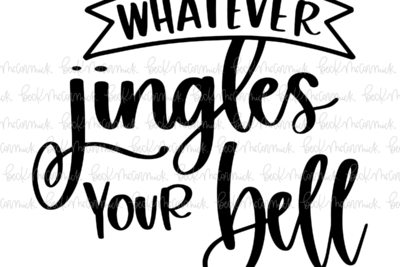 WHATEVER
jingles
YOUR
bell